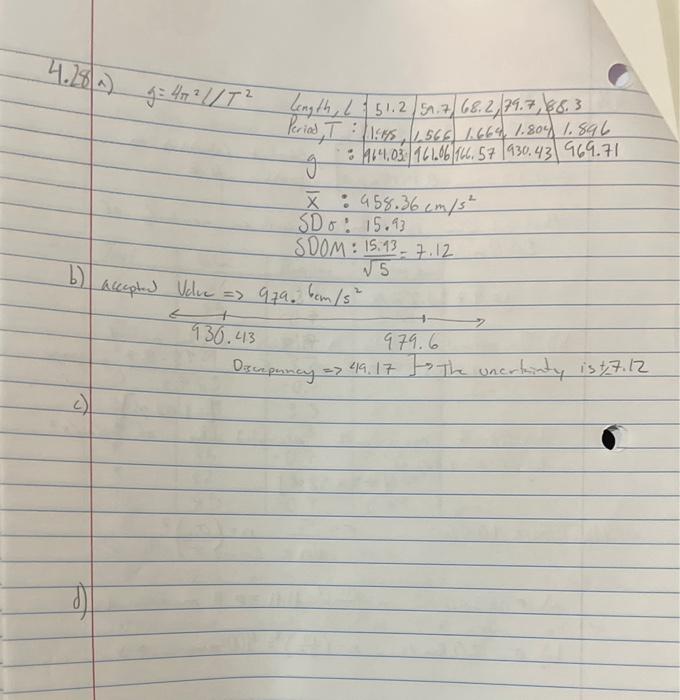 4.28 a) g=4π²l/T² Length, L : 51.2 | 59.7 | 68.2, | 79.7, | 88.3
Period, T : 1.566 1.664, 1.804 1.896
g : 964.03 961.06 966.57 930.43 969.71
x̄ : 958.36 cm/s²
SD σ : 15.93
SDOM : 15.93/√5 = 7.12
b) accepted Value => 979.6cm/s²
930.43 979.6
Discrepancy => 49.17 }→ The uncertainty is ±7.12
c)
d)